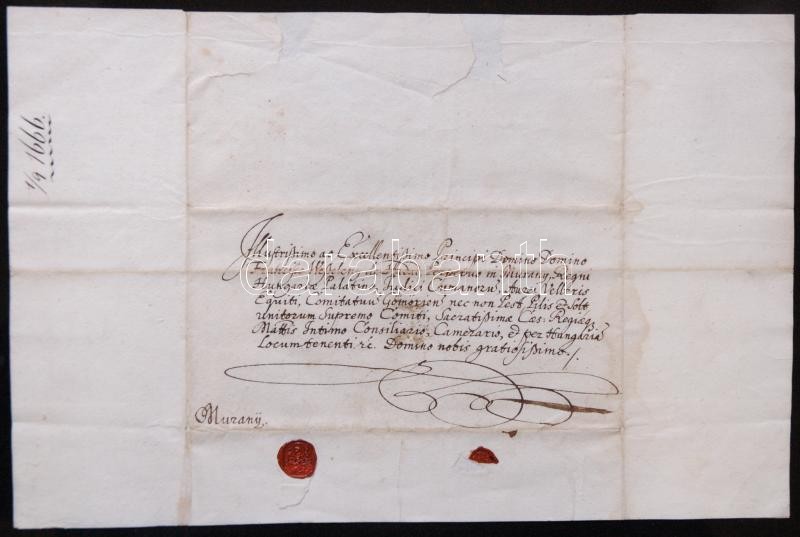 1/9 1666.
Illustrissimo ac Excellentissimo Principi Domino Domino
Francisco in Murany, Regni
Hungariae Palatino, Judici Cumanorū, Aurei Velleris
Equiti, Comitatuū Gömörien̄ nec non Pest, Pilis & Solt
unitorum Supremo Comiti, Sacratissimæ Cæs: Regiæq
Mattis Intimo Consiliario, Camerario, et per Hungariā
Locumtenenti &c. Domino nobis gratiosissimo./.
Muranÿ.
darabanth